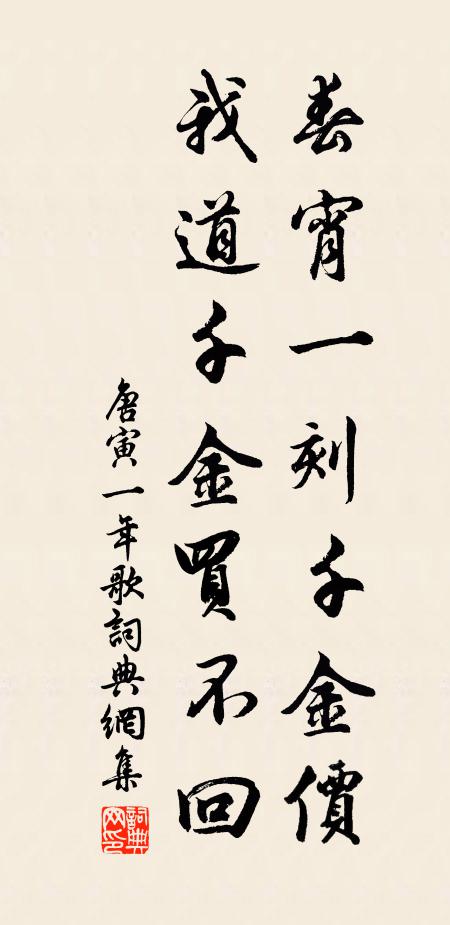 春宵一刻千金價
我道千金買不回
唐寅一年歌詞典網集
詞典网印